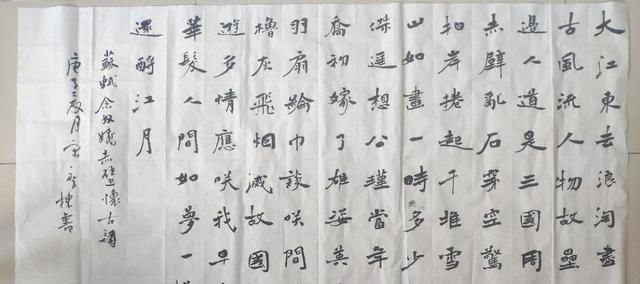 大江東去浪淘盡
古風流人物故壘
邊人道是三國周
赤壁亂石穿空驚
拍岸捲起千堆雪
山如畫一時多少
傑遥想公瑾當年
喬初嫁了雄姿英
羽扇綸巾談咲間
櫓灰飛烟滅故國
遊多情應咲我早
華髮人間如夢一
還酹江月
蘇軾念奴嬌赤壁懷古
庚子二月宋棟書